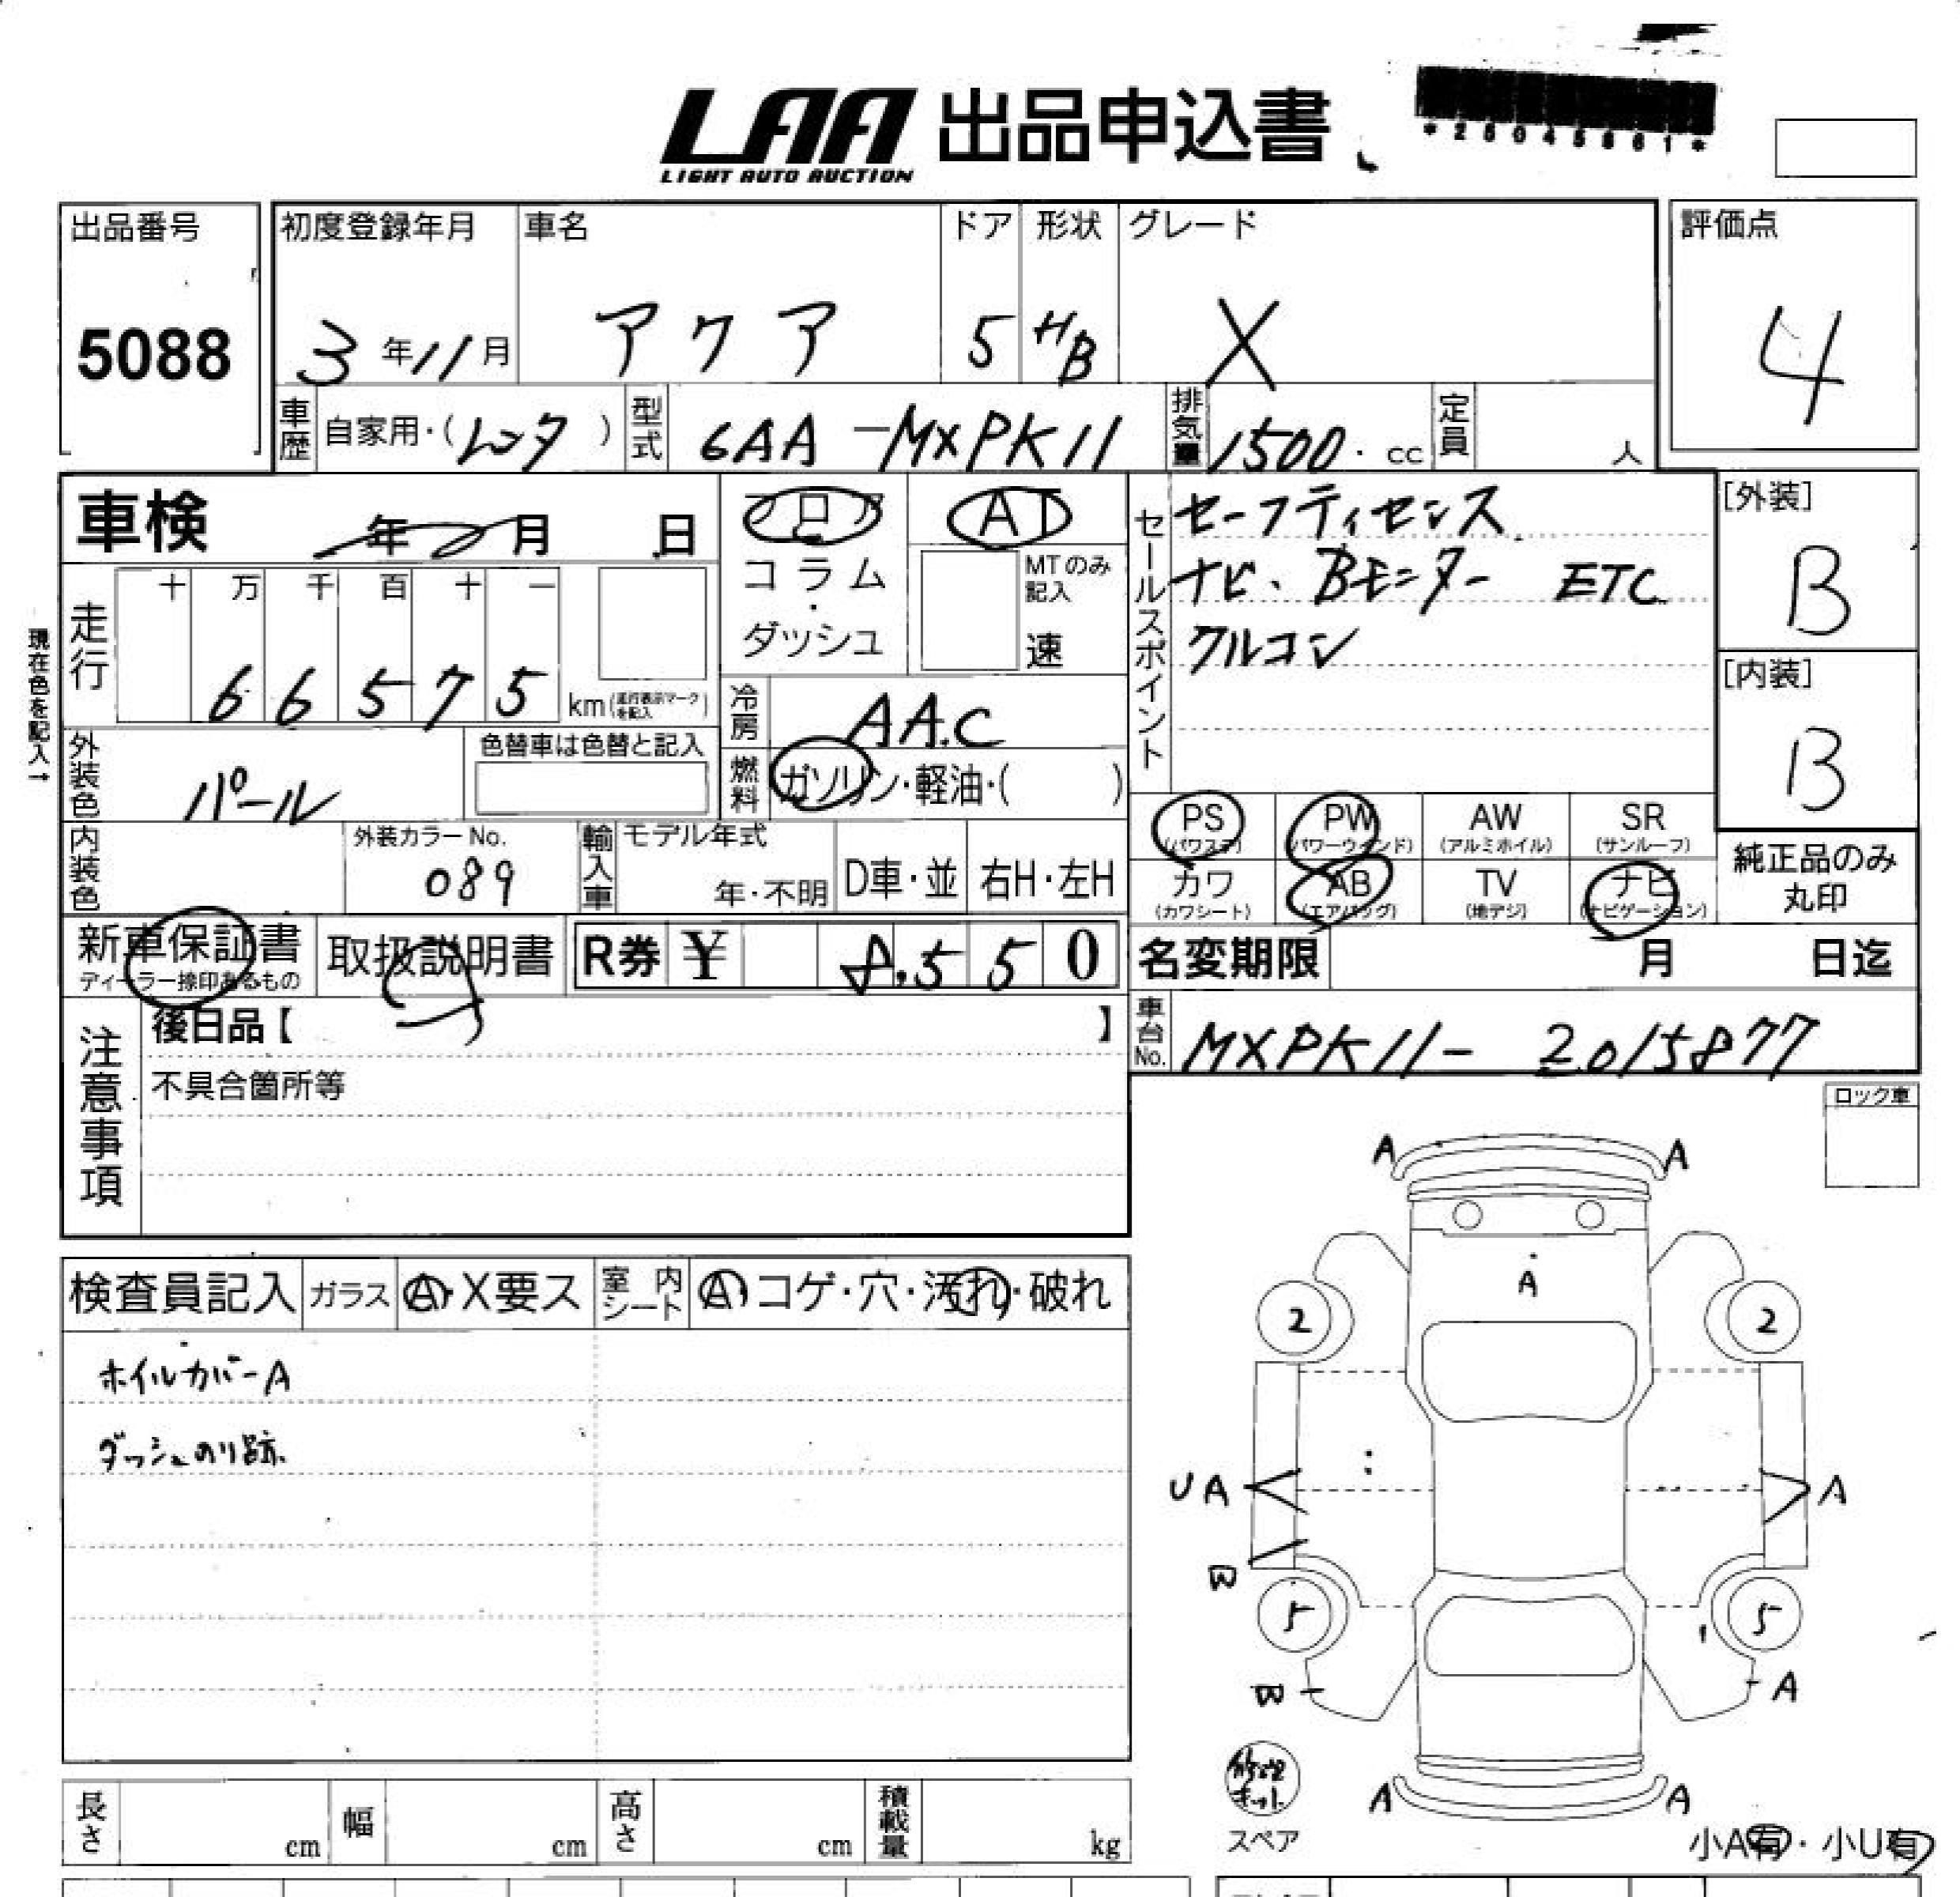 LAA 出品申込書
LIGHT AUTO AUCTION
*25045861*
出品番号
5088
初度登録年月
3年11月
車名
アクア
ドア
5
形状
H/B
グレード
X
評価点
4
車歴
自家用・(レンタ)
型式
6AA-MXPK11
排気量
1500.cc
定員
人
車検
年 月 日
フロア
コラム
・
ダッシュ
AT
MTのみ
記入
速
セールスポイント
セーフティセンス
ナビ、Bモニター ETC
クルコン
[外装]
B
[内装]
B
現在色を記入→
走行
十 万 千 百 十 一
6 6 5 7 5
km(走行表示マークを記入)
冷房
AAC
燃料
ガソリン・軽油・( )
外装色
パール
色替車は色替と記入
内装色
外装カラーNo.
089
輸入車
モデル年式
年・不明
D車・並
右H・左H
PS
(パワステ)
PW
(パワーウインド)
AW
(アルミホイル)
SR
(サンルーフ)
カワ
(カワシート)
AB
(エアバッグ)
TV
(地デジ)
ナビ
(ナビゲーション)
純正品のみ
丸印
新車保証書
ディーラー捺印あるもの
取扱説明書
R券 ¥ 8,550
名変期限
月 日迄
注意事項
後日品【 】
不具合箇所等
車台No.
MXPK11-2015877
ロック車
検査員記入
ガラス
A・X要ス
室内シート
A・コゲ・穴・汚れ・破れ
ホイルカバーA
ダッシュのり跡
A A
A
2 2
UA A
B
5 5
B A
修理キット
スペア
A A
小A有・小U有
長さ
cm
幅
cm
高さ
cm
積載量
kg